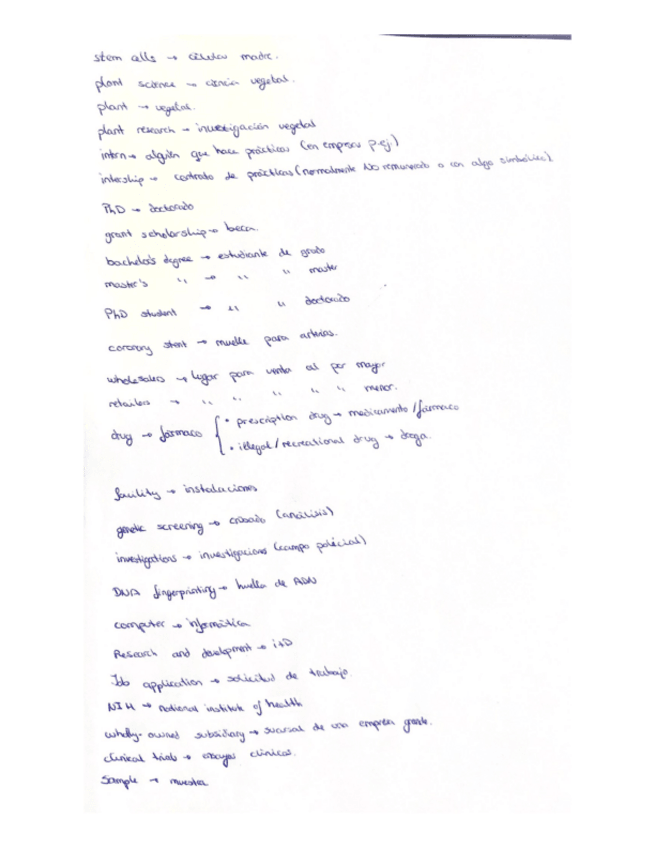 stem cells → células madre.
plant science → ciencia vegetal.
plant → vegetal.
plant research → investigación vegetal
intern → alguien que hace prácticas (en empresa p.ej.)
intership → contrato de prácticas (normalmente NO remunerado o con algo simbólico).
PhD → doctorado
grant scholarship → beca.
bachelor's degree → estudiante de grado
master's " → " " master
PhD student → " " doctorado
coronary stent → muelle para arterias.
wholesalers → lugar para venta al por mayor
retailers → " " " " " menor.
drug → fármaco { • prescription drug → medicamento/fármaco
• illegal/recreational drug → droga.
facility → instalaciones
genetic screening → cribado (análisis)
investigations → investigaciones (campo policial)
DNA fingerprinting → huella de ADN
computer → informática
Research and development → i+D
Job application → solicitud de trabajo.
NIH → national institute of health
wholly-owned subsidiary → sucursal de una empresa grande.
clinical trials → ensayos clínicos.
Sample → muestra